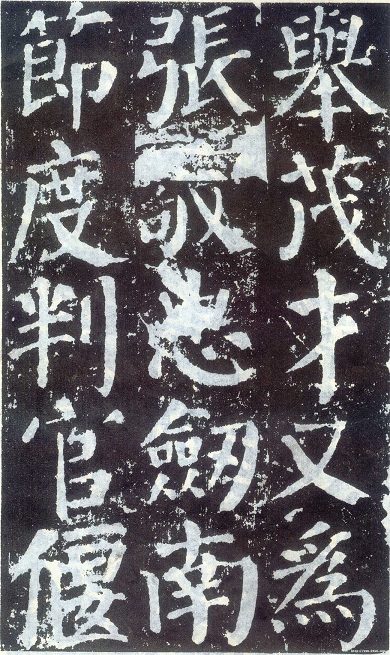 舉茂才又為
張敬忠劒南
節度判官偃